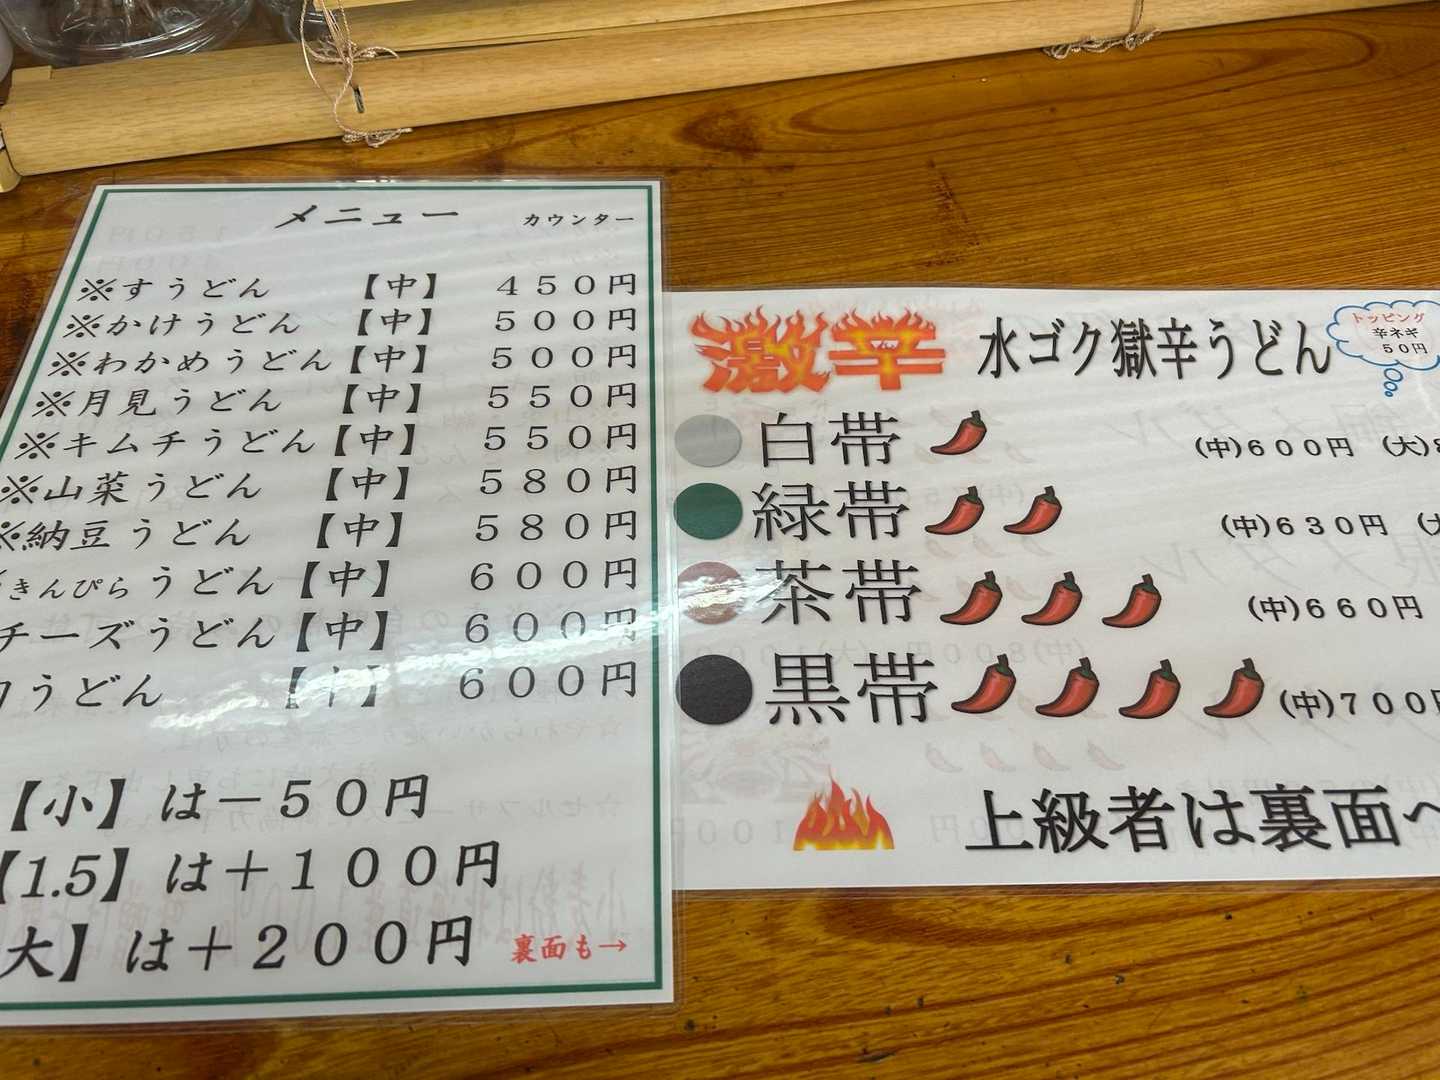 メニュー カウンター
※すうどん 【中】 450円
※かけうどん 【中】 500円
※わかめうどん【中】 500円
※月見うどん 【中】 550円
※キムチうどん【中】 550円
※山菜うどん 【中】 580円
※納豆うどん 【中】 580円
きんぴらうどん【中】 600円
チーズうどん【中】 600円
うどん 【中】 600円
【小】は－50円
【1.5】は＋100円
大】は＋200円
裏面も→
激辛 水ゴク獄辛うどん
トッピング
辛ネギ
50円
白帯 (中)600円 (大)
緑帯 (中)630円
茶帯 (中)660円
黒帯 (中)700円
上級者は裏面へ